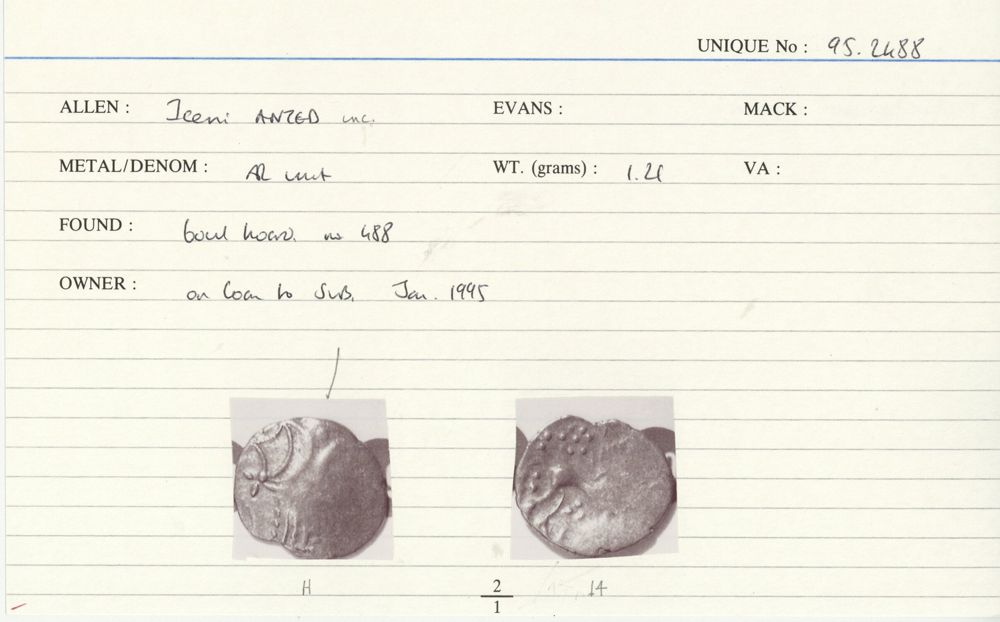 UNIQUE No : 95.2488
ALLEN : Iceni ANTED inc. EVANS : MACK :
METAL/DENOM : AR unit WT. (grams) : 1.21 VA :
FOUND : bowl hoard. no 488
OWNER : on loan to SUB. Jan. 1995
H 2 14
1